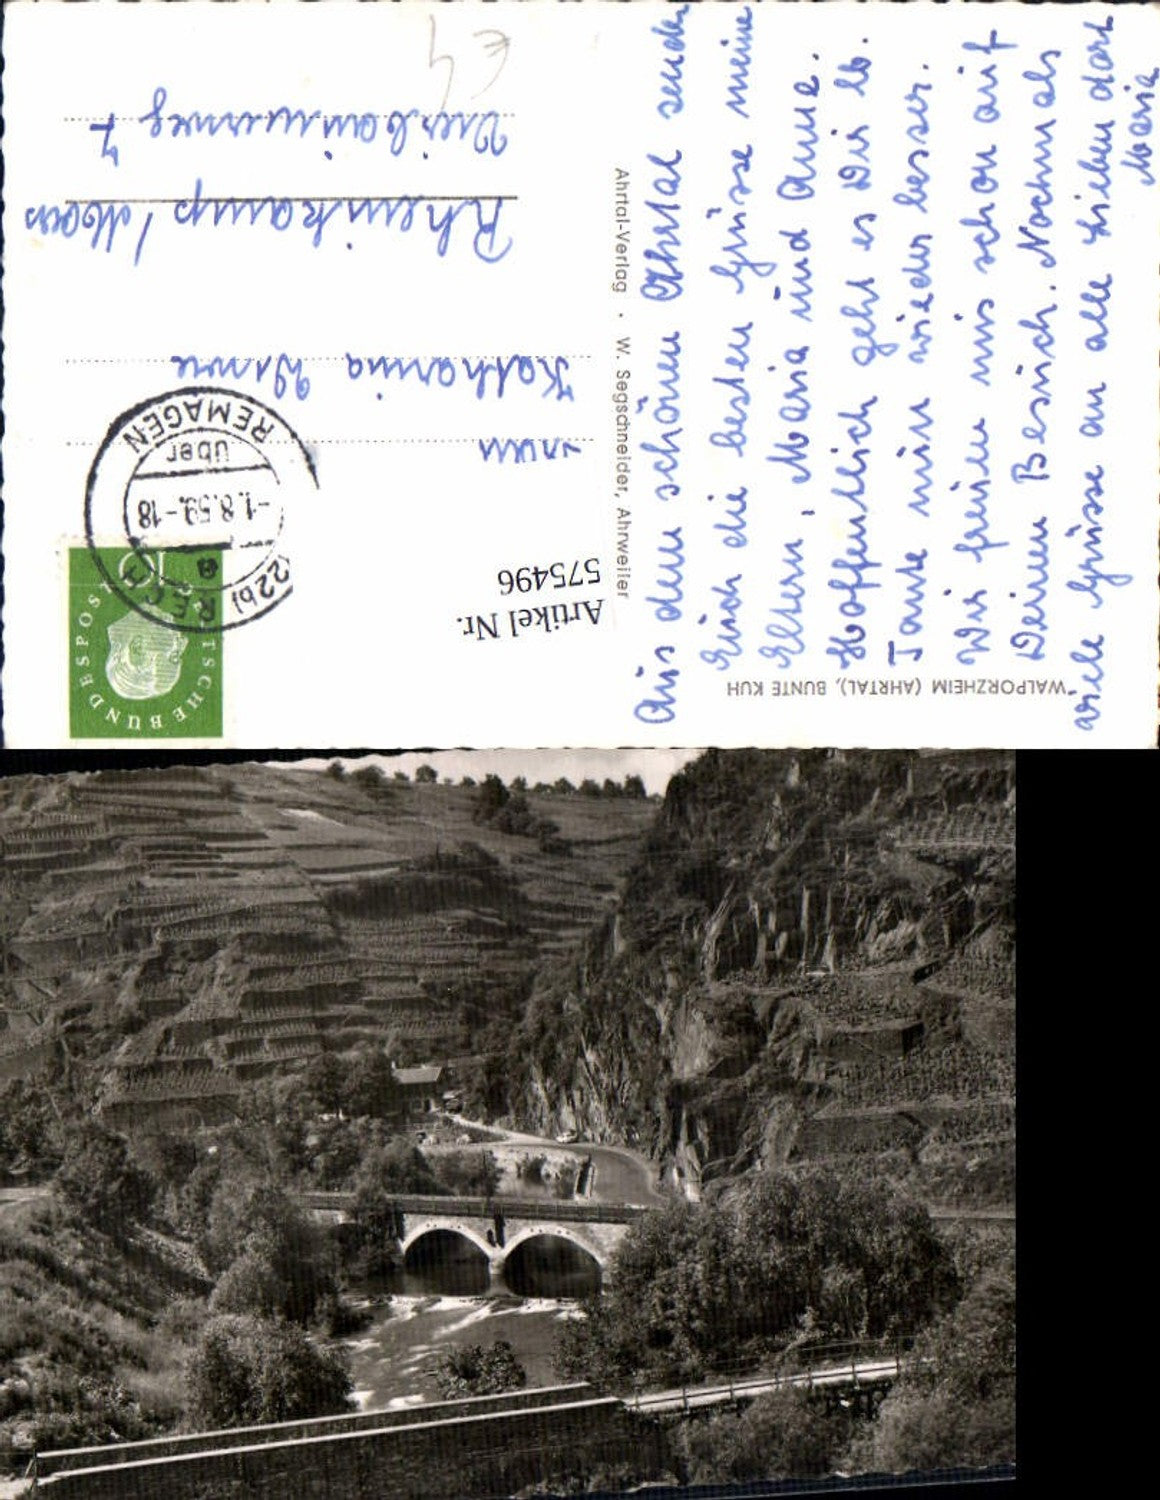 WALPORZHEIM (AHRTAL), BUNTE KUH
Aus dem schönen Ahrtal senden
Euch die besten Grüsse meine
Eltern, Maria und Anne.
Hoffentlich geht es Dir lb.
Tante nun wieder besser.
Wir freuen uns schon auf
Deinen Besuch. Nochmals
viele Grüsse an alle Lieben dort
Maria
Ahrtal-Verlag · W. Segschneider, Ahrweiler
Artikel Nr.
575496
DEUTSCHE BUNDESPOST
10
(22b) RECH
a
-1.8.59.-18
über
REMAGEN
Katharina
Rheinkamp / Moers
7
€ 4